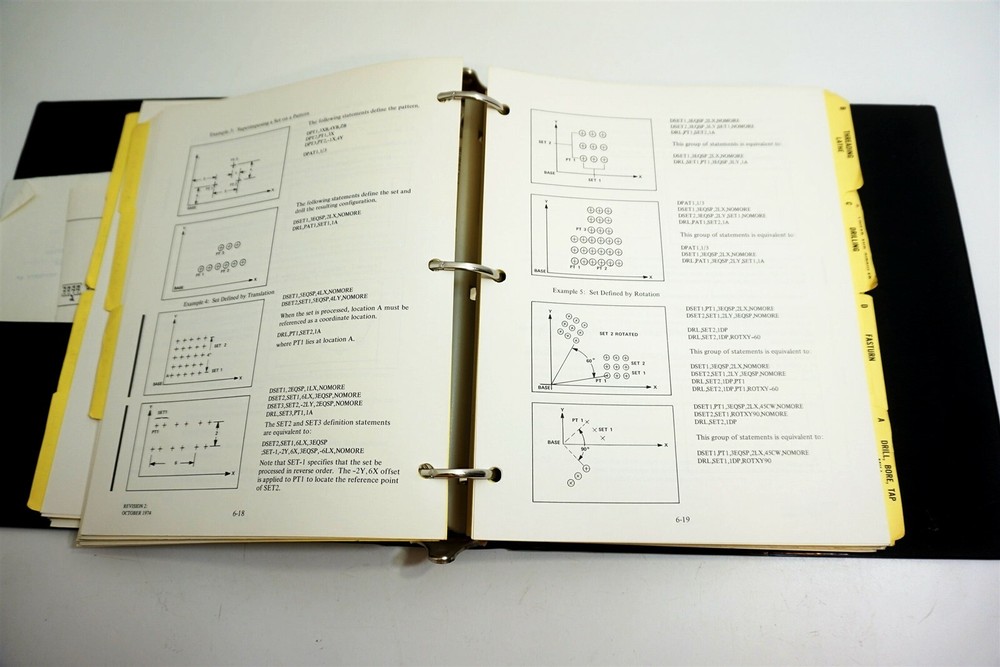 Example 3: Superimposing a Set on a Pattern
The following statements define the pattern.
DPAT1,1/3
The following statements define the set and
drill the resulting configuration.
DSET1,3EQSP,2LX,NOMORE
DRL,PAT1,SET1,1A
Example 4: Set Defined by Translation
DSET1,5EQSP,4LX,NOMORE
DSET2,SET1,3EQSP,4LY,NOMORE
When the set is processed, location A must be
referenced as a coordinate location.
DRL,PT1,SET2,1A
where PT1 lies at location A.
Y
SET 2
SET 1
BASE
X
DSET1,2EQSP,1LX,NOMORE
DSET2,SET1,6LX,3EQSP,NOMORE
DSET3,SET2,-2LY,2EQSP,NOMORE
DRL,SET3,PT1,1A
The SET2 and SET3 definition statements
are equivalent to:
DSET2,SET1,6LX,3EQSP
;SET-1,-2Y,6X,3EQSP,-6LX,NOMORE
Note that SET-1 specifies that the set be
processed in reverse order. The -2Y,6X offset
is applied to PT1 to locate the reference point
of SET2.
Y
SET1
PT1
2
6
X
REVISION 2
OCTOBER 1976
6-18
Y
SET 2
PT 1
SET 1
BASE
X
DSET1,3EQSP,2LX,NOMORE
DSET2,3EQSP,2LY,SET1,NOMORE
DRL,PT1,SET2,1A
This group of statements is equivalent to:
DSET1,3EQSP,2LX,NOMORE
DRL,SET1,PT1,3EQSP,2LY,1A
Y
PT 3
PT 1
PT 2
BASE
X
DPAT1,1/3
DSET1,3EQSP,2LX,NOMORE
DSET2,3EQSP,2LY,SET1,NOMORE
DRL,PAT1,SET2,1A
This group of statements is equivalent to:
DPAT1,1/3
DSET1,3EQSP,2LX,NOMORE
DRL,PAT1,3EQSP,2LY,SET1,1A
Example 5: Set Defined by Rotation
Y
SET 2 ROTATED
60°
SET 2
SET 1
PT 1
BASE
X
DSET1,PT1,3EQSP,2LX,NOMORE
DSET2,SET1,2LY,3EQSP,NOMORE
DRL,SET2,1DP
DRL,SET2,1DP,ROTXY-60
This group of statements is equivalent to:
DSET1,3EQSP,2LX,NOMORE
DSET2,SET1,2LY,3EQSP,NOMORE
DRL,SET2,1DP,PT1
DRL,SET2,1DP,PT1,ROTXY-60
Y
PT 1
SET 1
BASE
X
90°
DSET1,PT1,3EQSP,2LX,45CW,NOMORE
DSET2,SET1,ROTXY90,NOMORE
DRL,SET2,1DP
This group of statements is equivalent to:
DSET1,PT1,3EQSP,2LX,45CW,NOMORE
DRL,SET1,1DP,ROTXY90
6-19
B
THREADING
LATHE
C
DRILLING
D
FASTURN
A
DRILL, BORE, TAP